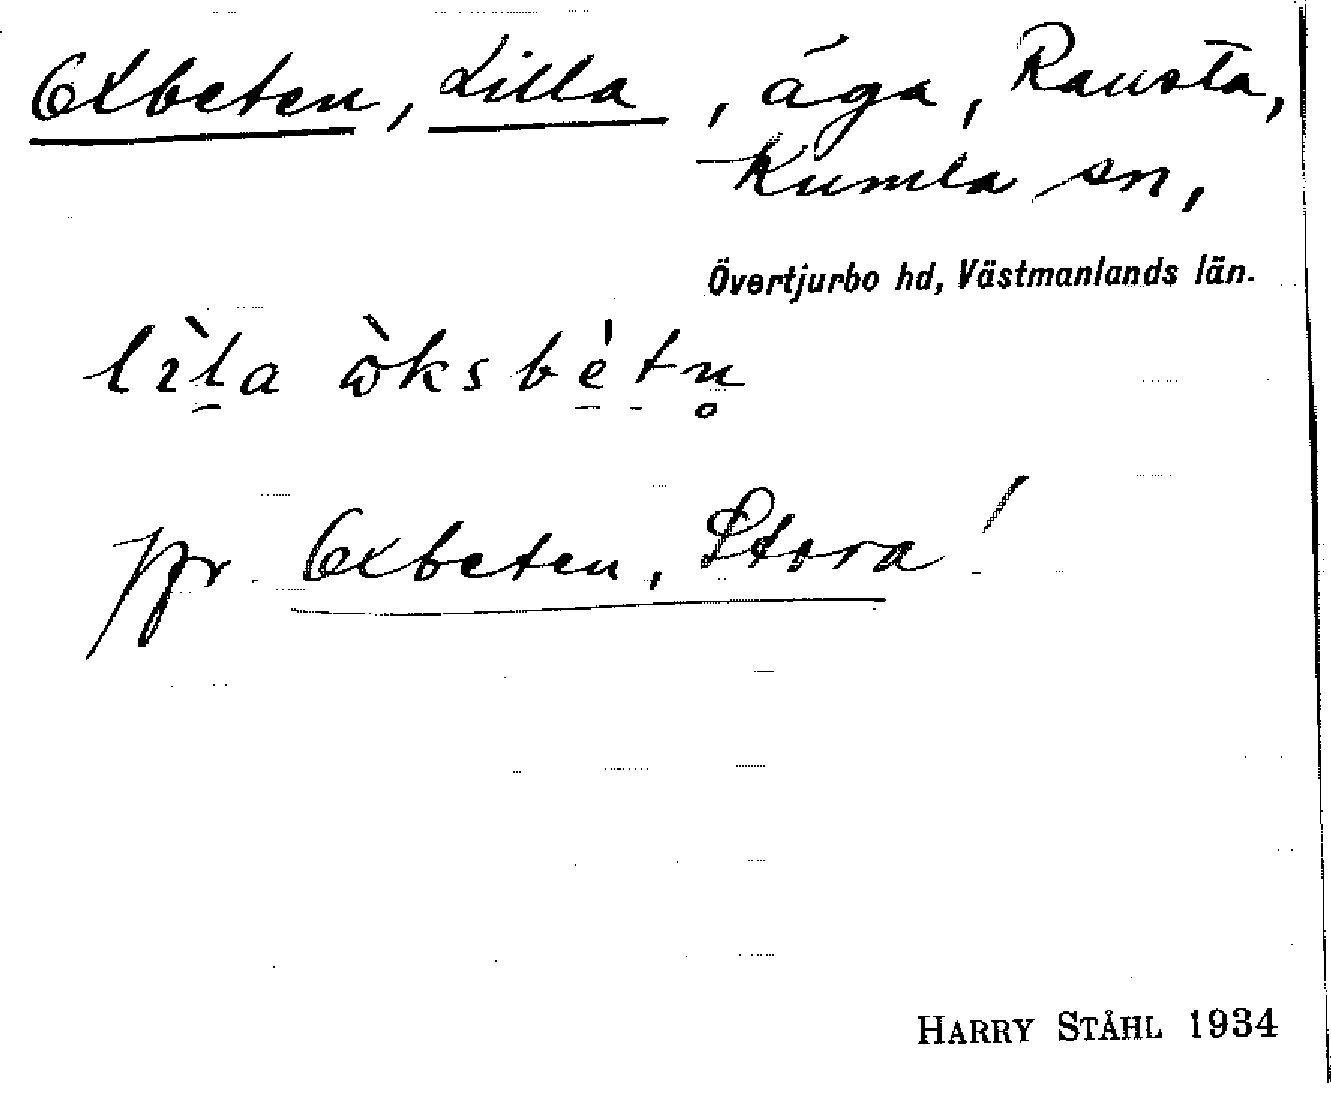 Oxbeten, Lilla, äga, Rausta,
Kumla sn,
Övertjurbo hd, Västmanlands län.
lìl̠a òksbe̠t̠n̥
pr Oxbeten, Stora!
HARRY STÅHL 1934